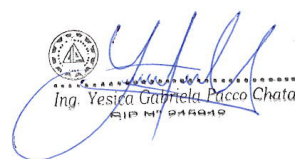 Ing. Yesica Gabriela Pacco Chata
CIP N°